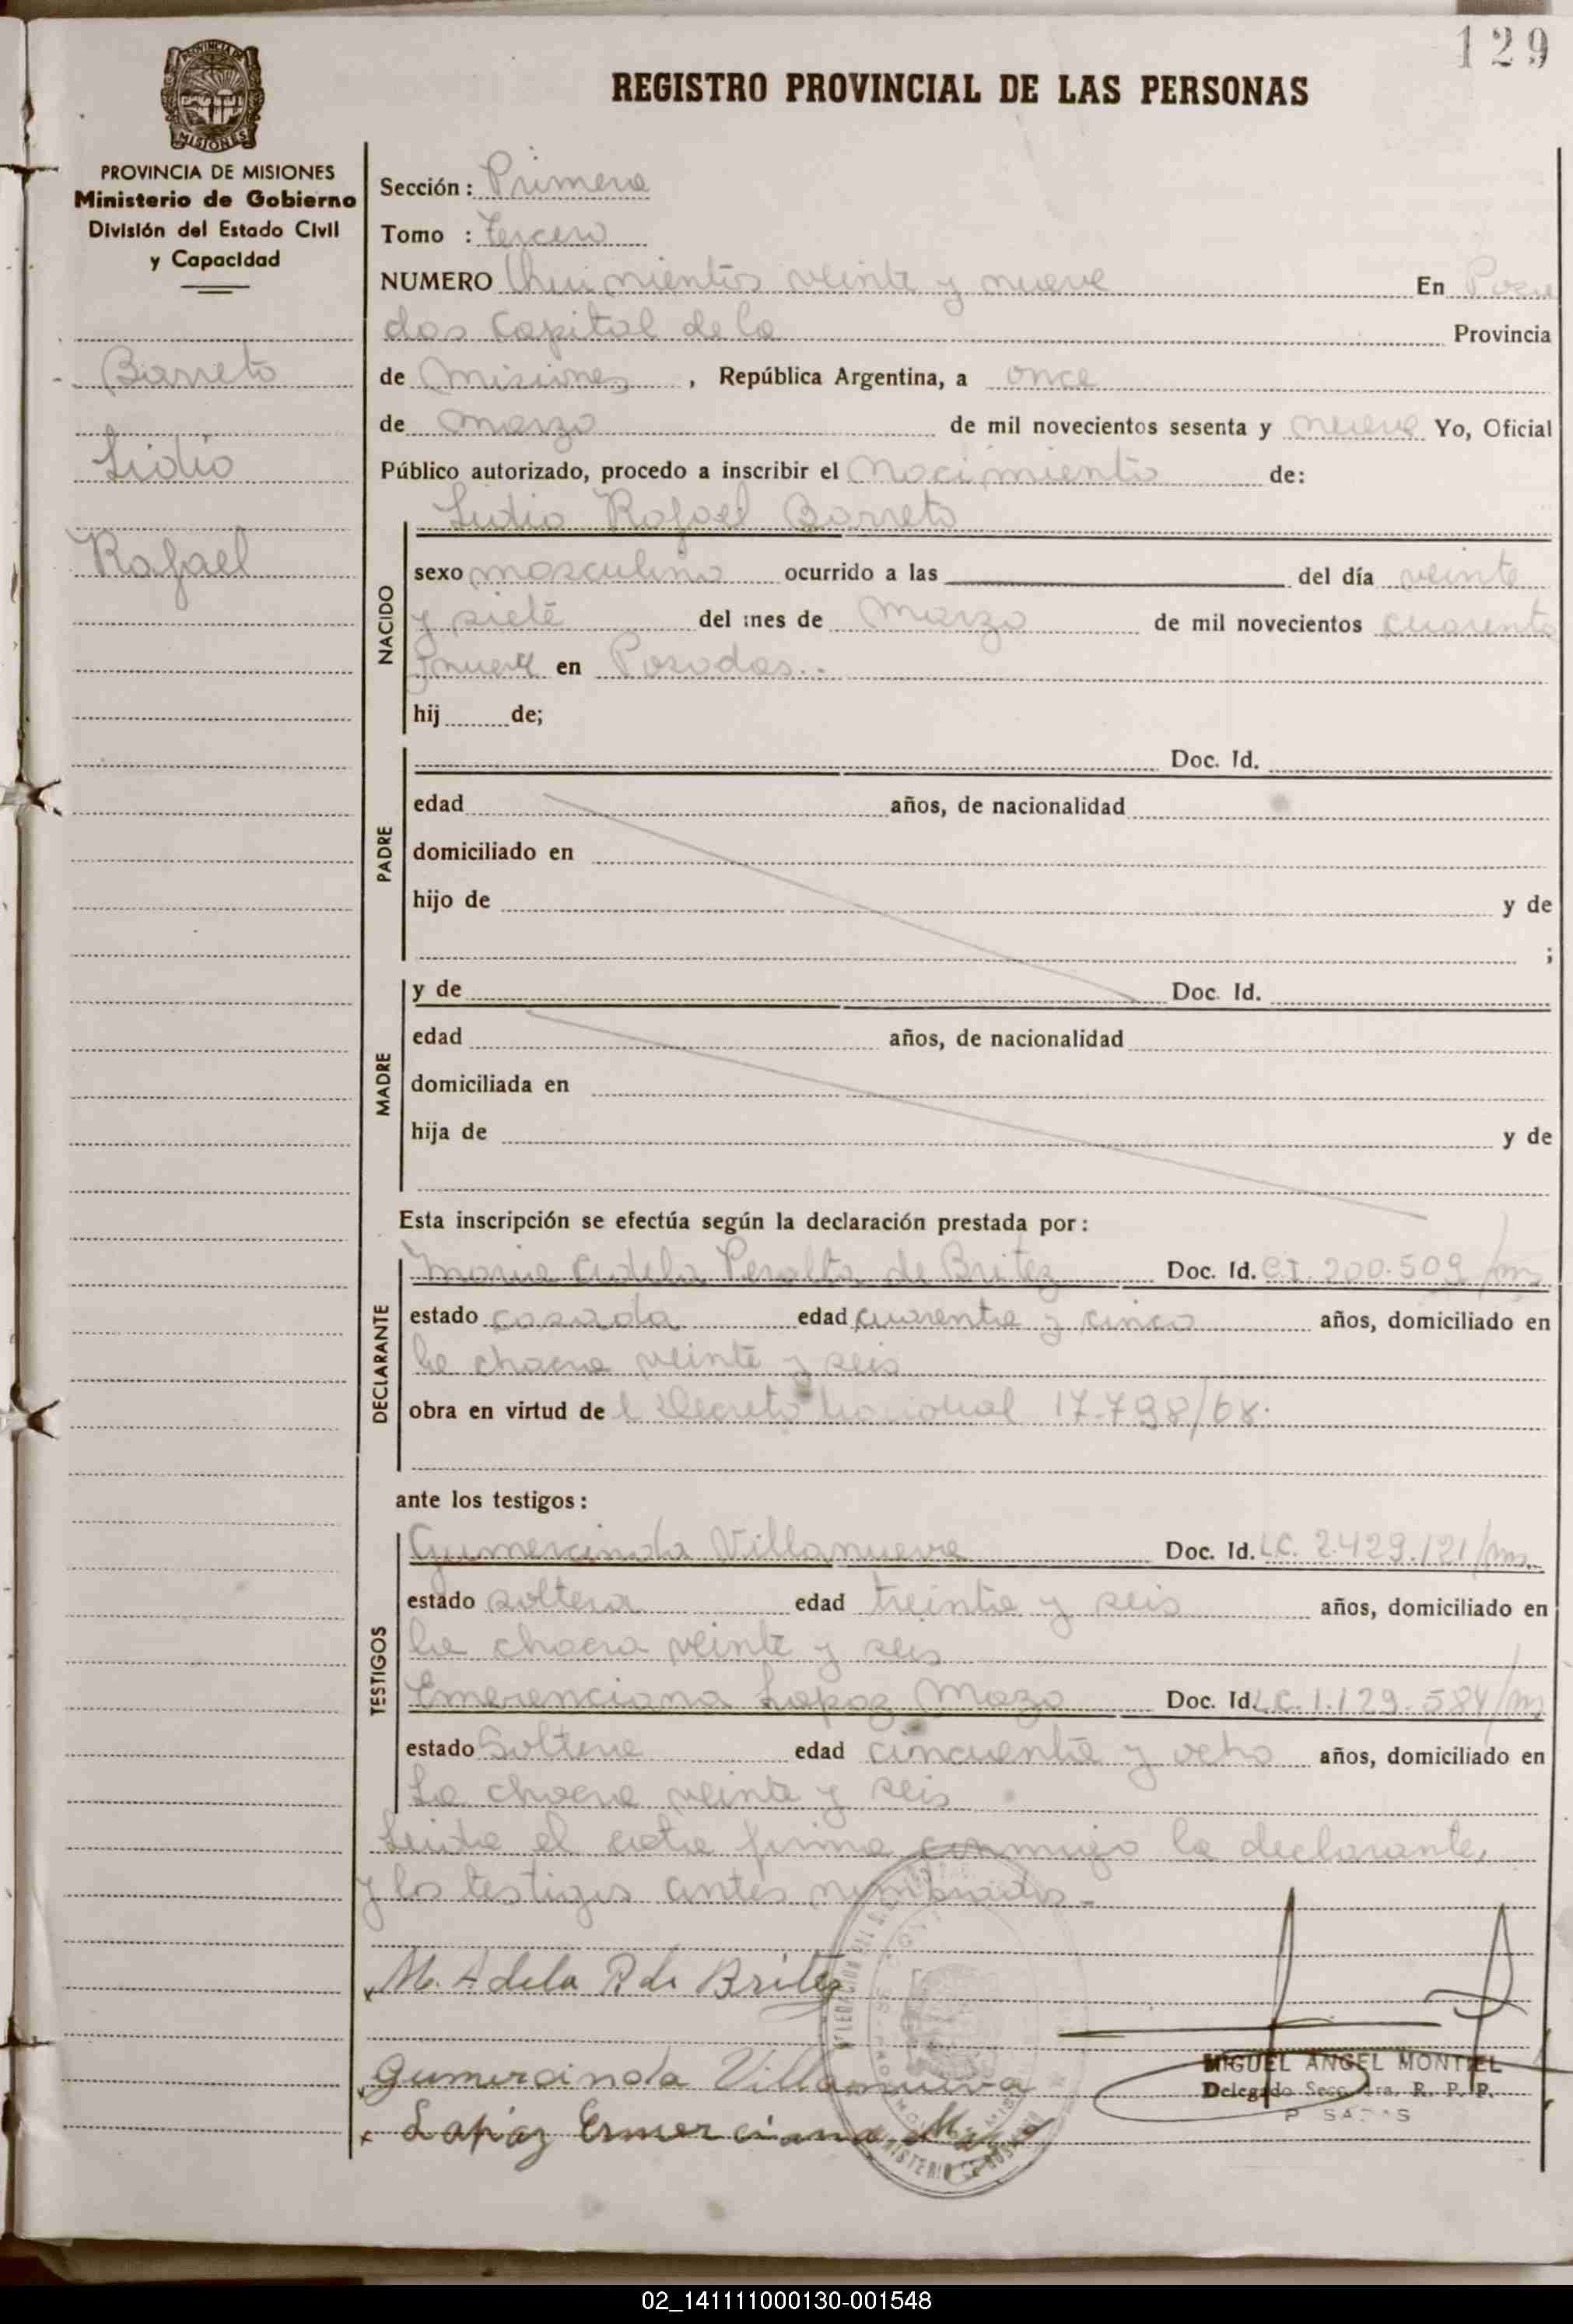 129
REGISTRO PROVINCIAL DE LAS PERSONAS
MISIONES
PROVINCIA DE MISIONES
Ministerio de Gobierno
División del Estado Civil
y Capacidad
Barreto
Lidio
Rafael
Sección: Primera
Tomo : Tercero
NUMERO Quinientos veinte y nueve En Posa
das Capital de la Provincia
de Misiones , República Argentina, a once
de Marzo de mil novecientos sesenta y nueve Yo, Oficial
Público autorizado, procedo a inscribir el Nacimiento de:
Lidio Rafael Barreto
NACIDO
sexo masculino ocurrido a las del día veinte
y siete del mes de Marzo de mil novecientos cuarenta
y nueve en Posadas.-
hij de;
PADRE
Doc. Id.
edad años, de nacionalidad
domiciliado en
hijo de y de
;
MADRE
y de Doc. Id.
edad años, de nacionalidad
domiciliada en
hija de y de
Esta inscripción se efectúa según la declaración prestada por:
DECLARANTE
Maria Adela Peralta de Britez Doc. Id. C.I. 200.509/m
estado casada edad cuarenta y cinco años, domiciliado en
la chacra veinte y seis
obra en virtud de l Decreto Nacional 17.798/68.
ante los testigos:
TESTIGOS
Gumercinda Villanueva Doc. Id. L.C. 2.429.121/ms.
estado soltera edad treinta y seis años, domiciliado en
la chacra veinte y seis
Emerenciana Lopez Mazo Doc. Id. L.C. 1.129.584/m
estado Soltera edad cincuenta y ocho años, domiciliado en
La chacra veinte y seis
Leida el acta firma conmigo la declarante,
y los testigos antes nombrados.-
M. Adela P. de Britez
Gumercinda Villanueva
MIGUEL ANGEL MONTIEL
Delegado Secc. 1ra. R. P. P.
P SADAS
x Lapez Ermerciana
02_141111000130-001548